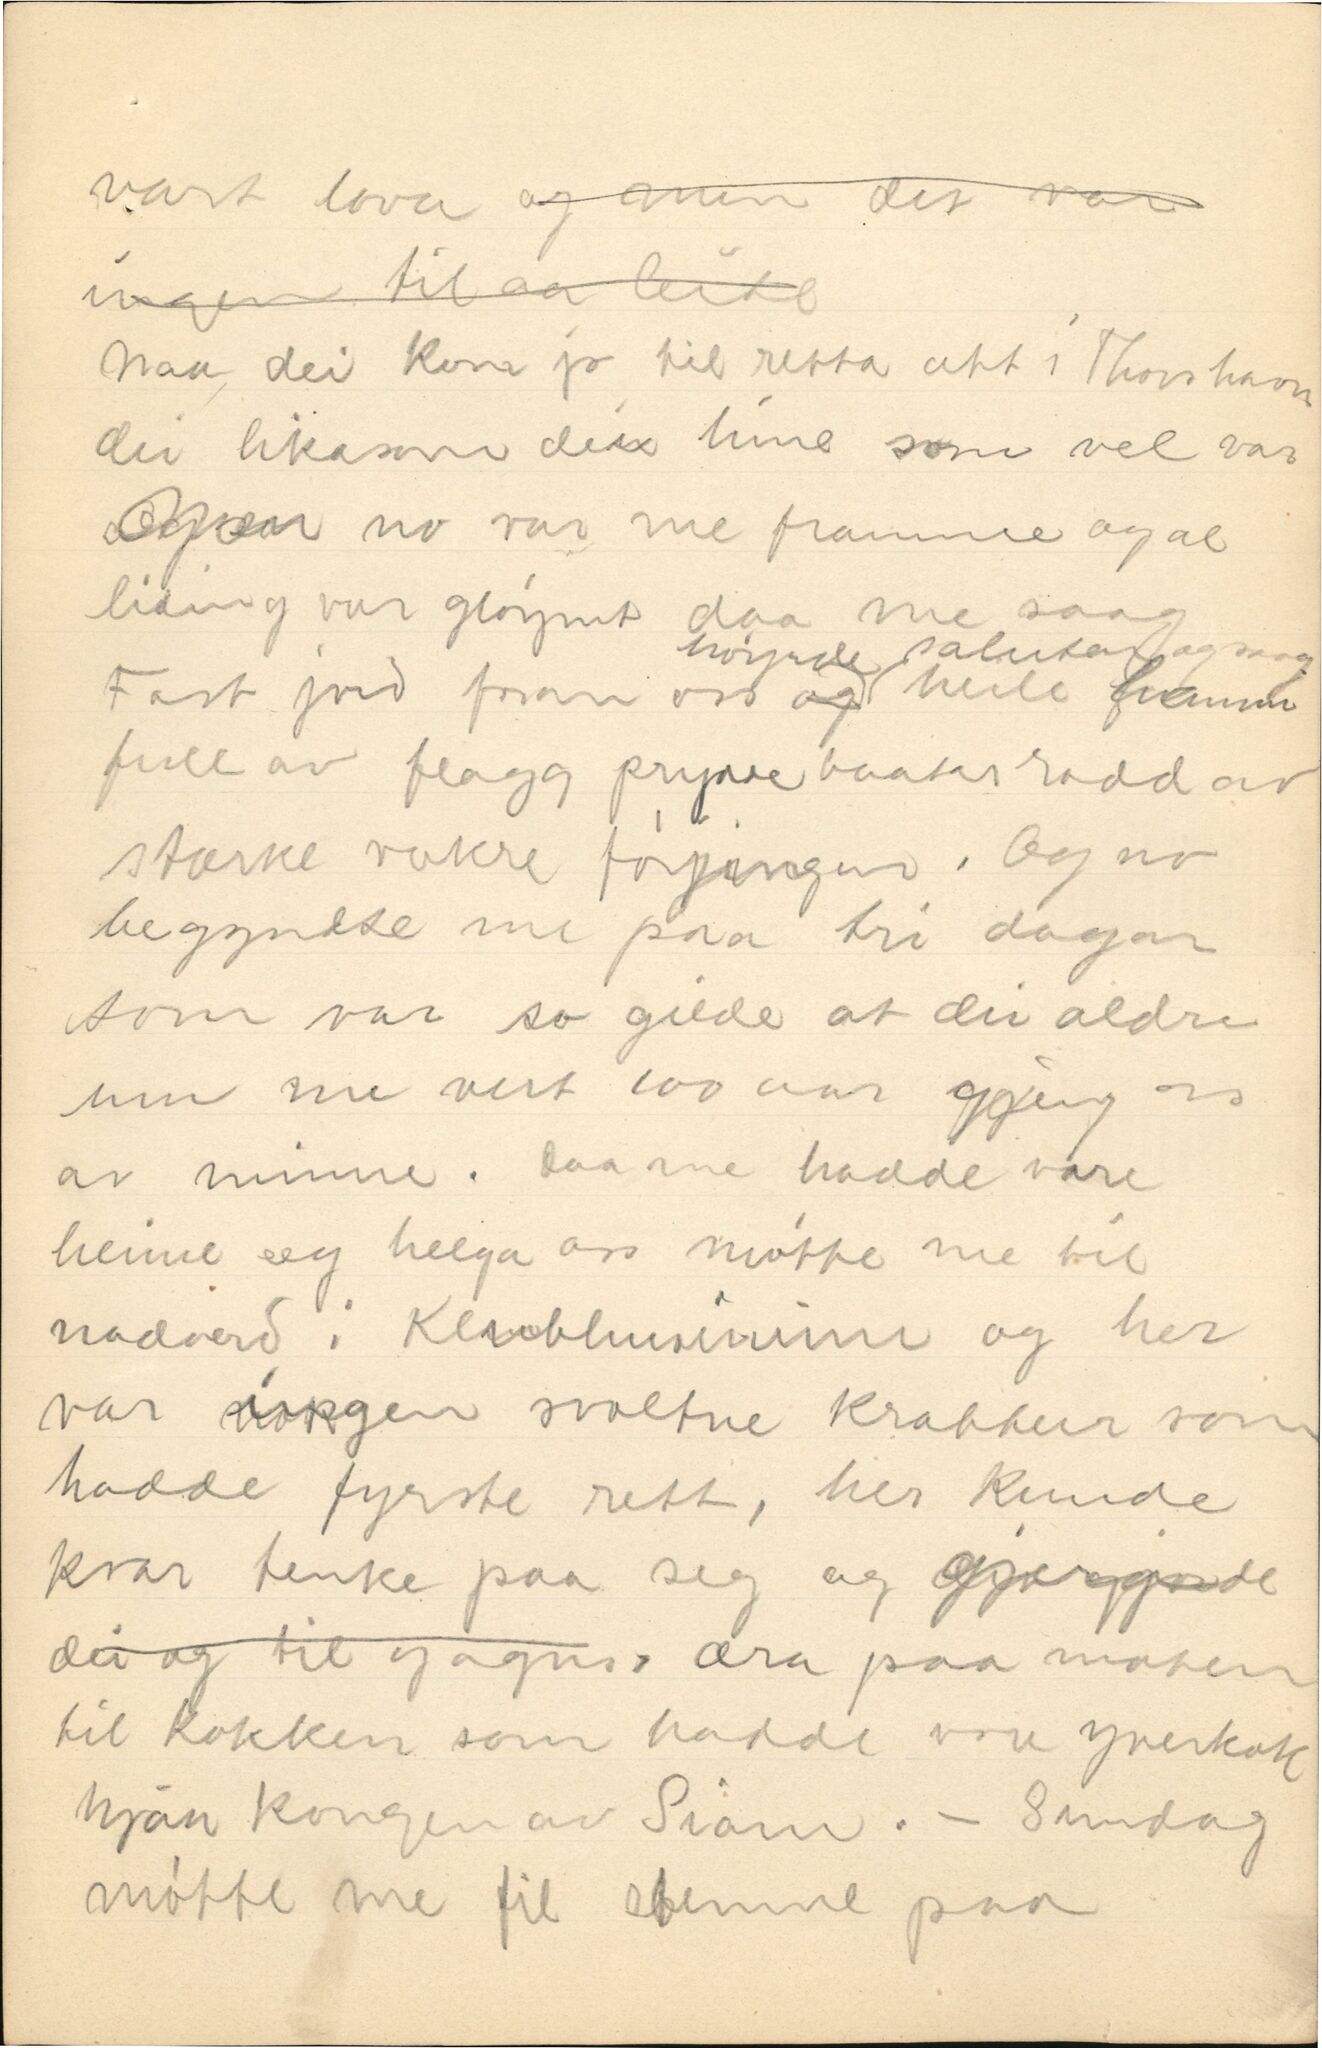 vart lova og men det var
ingen til aa leite
Naa, dei kom jo til retta att i Thorshavn
dei likasom dei hine som vel var
Og no var me framme og al
liding var gløymt daa me saag
høyrde salutar og saag
Fast jord fram oss og heile
full av flagg prydde baatar rodd av
sterke vakre føryingar. Og no
begyndte me paa tri dagar
som var so gilde at dei aldri
um me vert 100 aar gjeng os
av minne. Daa me hadde vore
heime og helga oss møtte me til
nadverd i Klubhusinum og her
var ingen svoltne krabbeir som
hadde fyrste rett, her kunde
kvar tenke paa seg og
dei og til gagns. æra paa maten
til kokken som hadde vore yverkok
hjaa kongen av Siam. – Sundag
møtte me til stemne paa